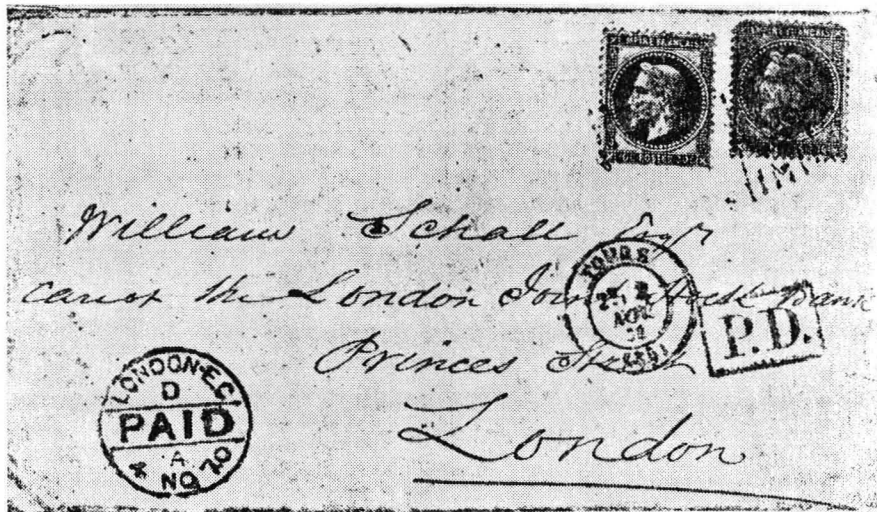 William Schall Esqr
care of the London Joint Stock Bank
Princes Street
London
TOURS
NOV.
P.D.
LONDON-EC
D
PAID
A
4 NO 70